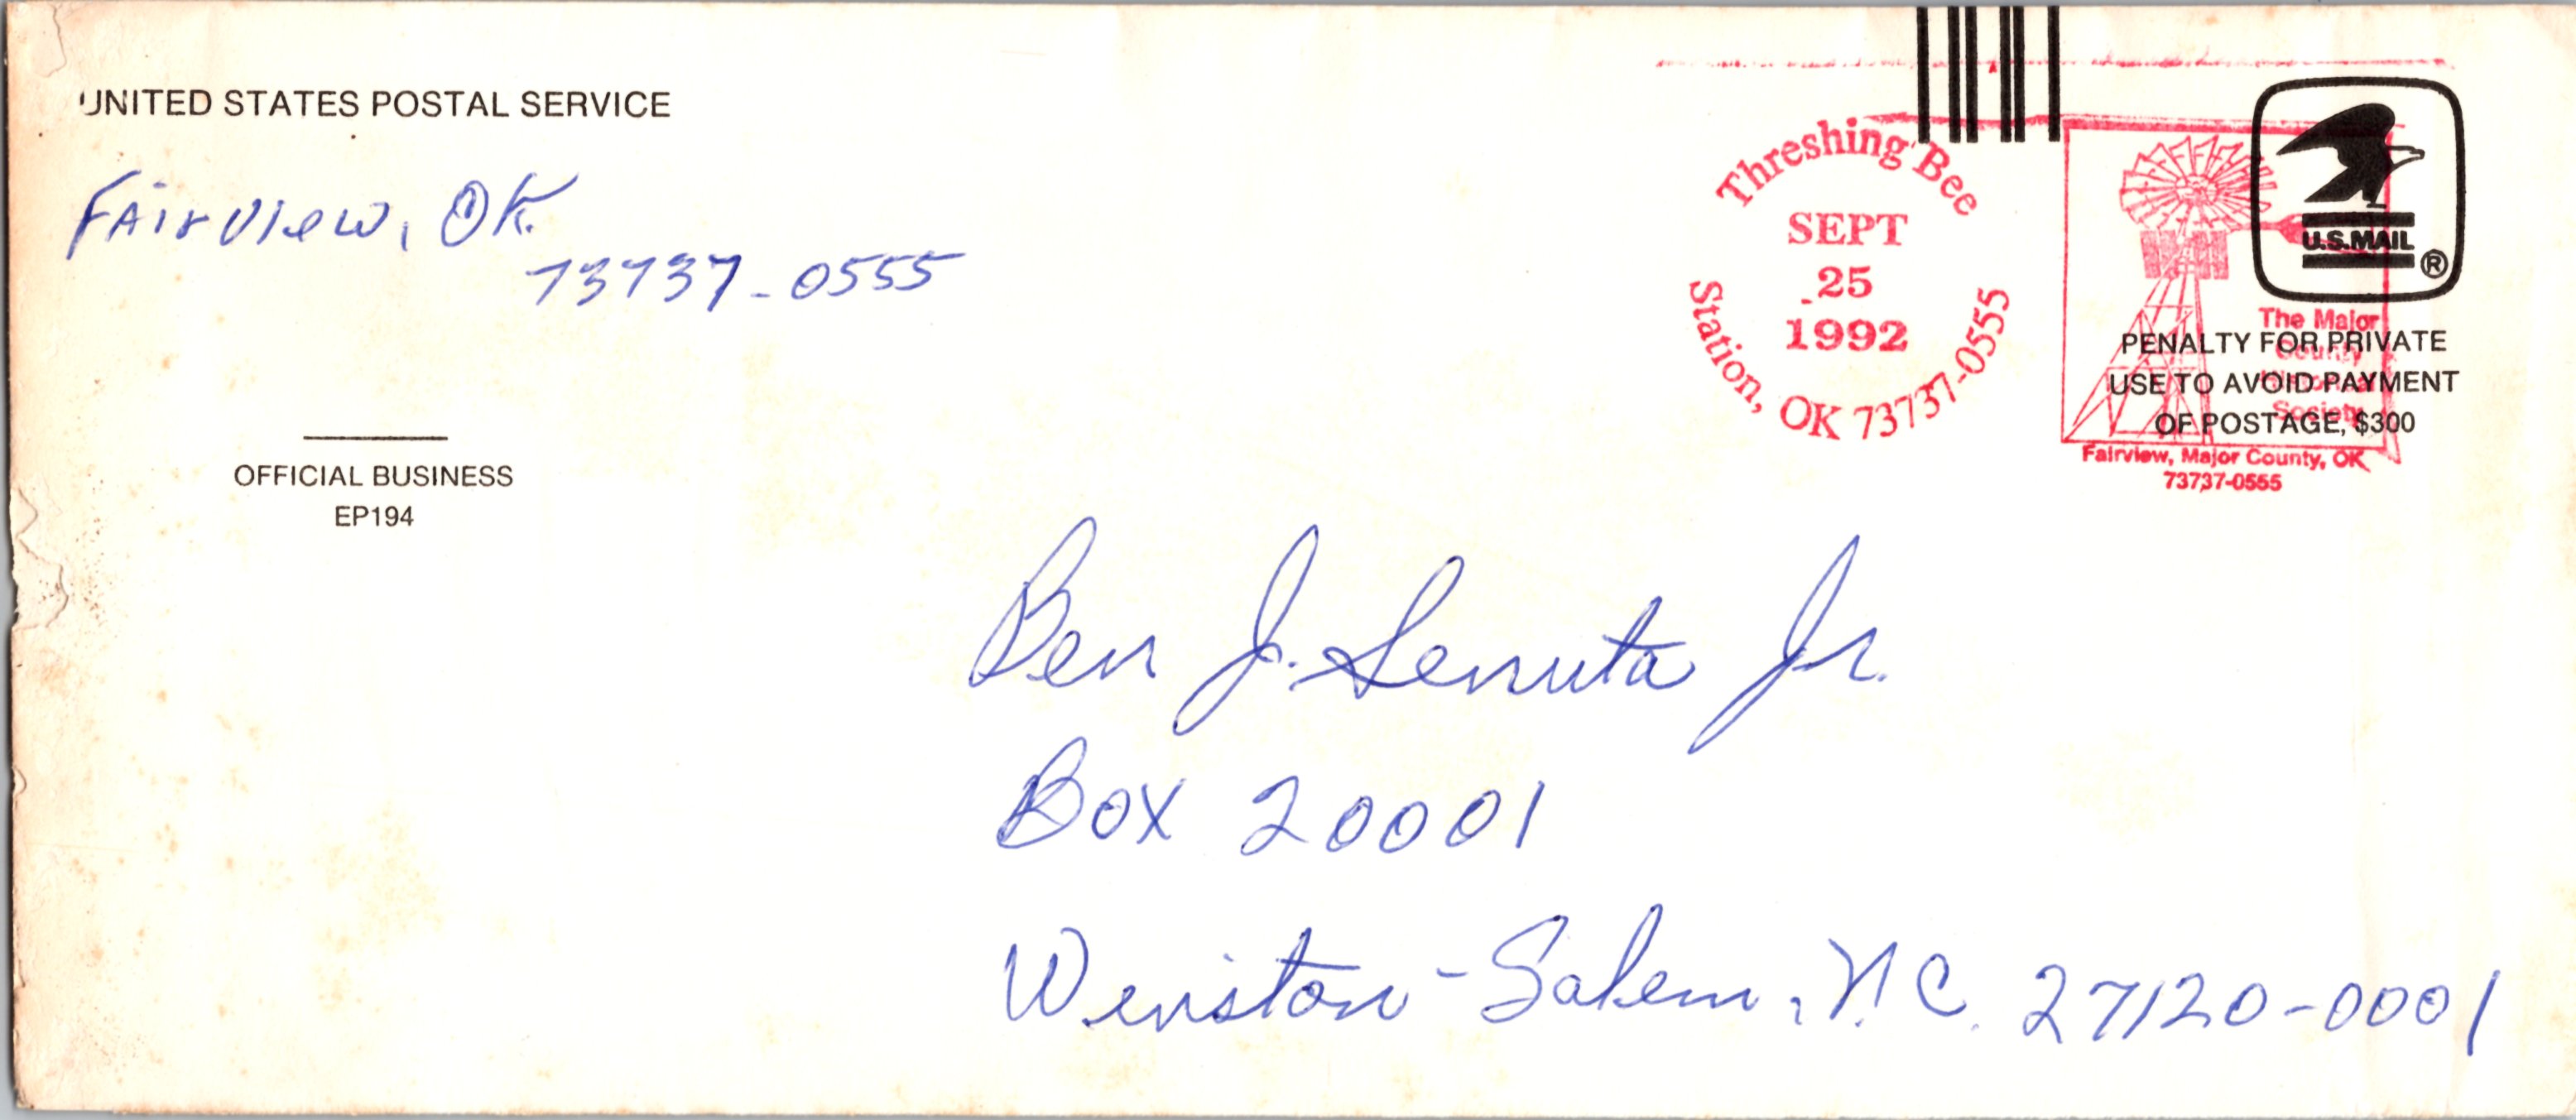 UNITED STATES POSTAL SERVICE
Fairview, OK.
73737-0555
OFFICIAL BUSINESS
EP194
Threshing Bee
SEPT
25
1992
Station, OK 73737-0555
U.S.MAIL
®
The Major
County
Historical
Society
PENALTY FOR PRIVATE
USE TO AVOID PAYMENT
OF POSTAGE, $300
Fairview, Major County, OK
73737-0555
Ben J. Senuta Jr.
Box 20001
Winston-Salem, N.C. 27120-0001